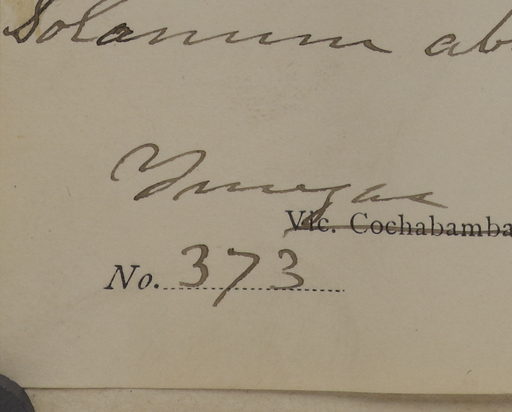 Solanum ab
Yungas
Vic. Cochabamba
No. 373